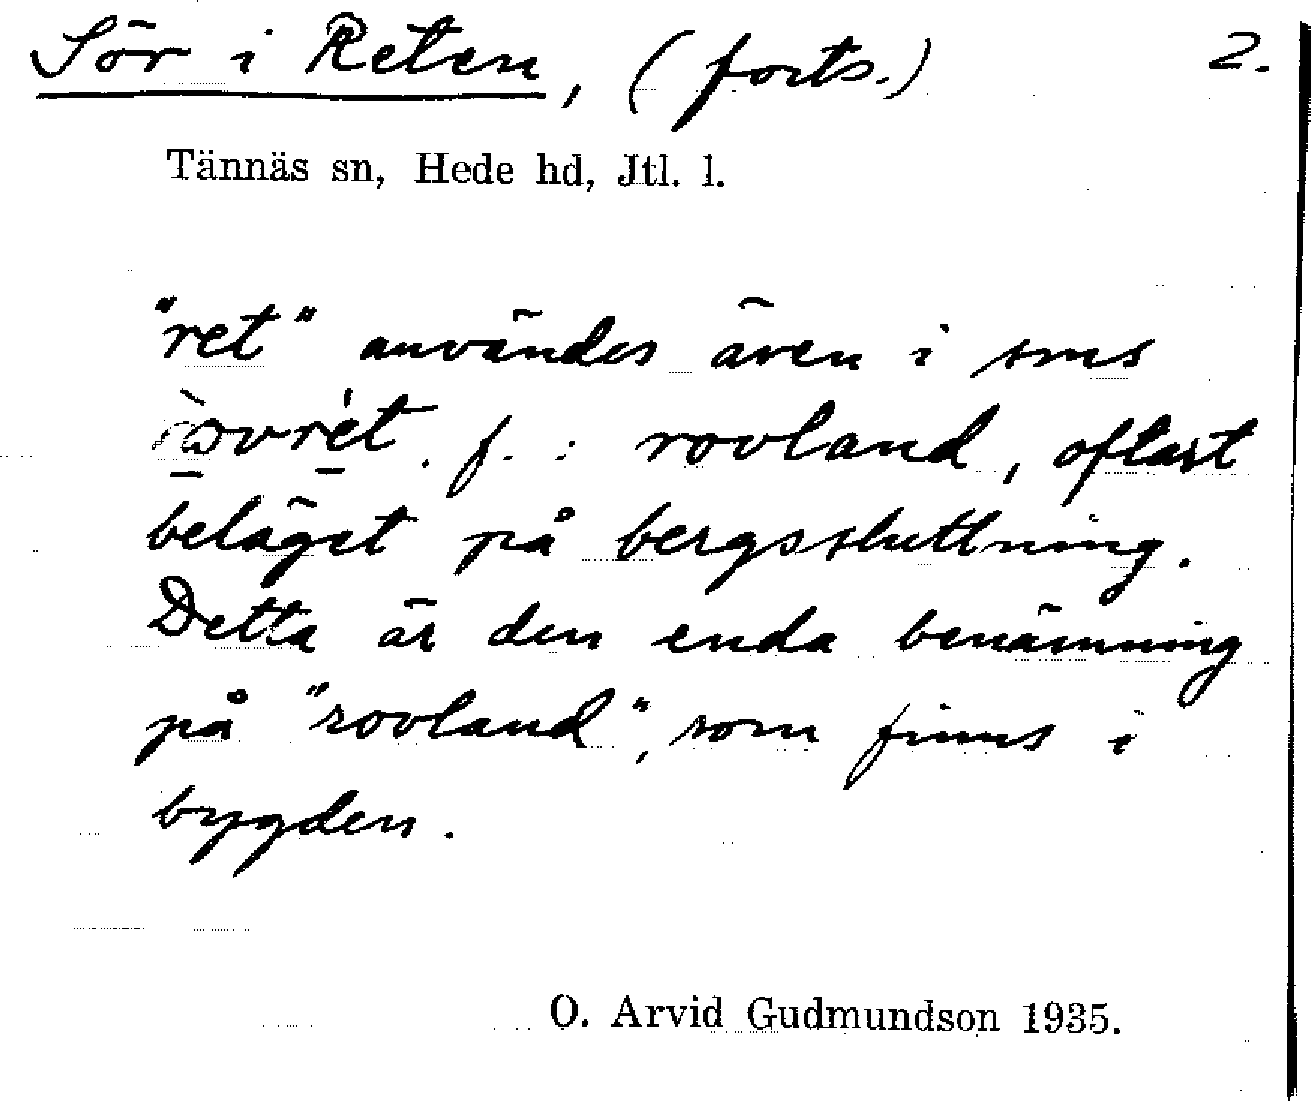 Sör i Reten, (forts.) 2.
Tännäs sn, Hede hd, Jtl. l.
"ret" användes även i sms
f. : rovland, oftast
beläget på bergssluttning.
Detta är den enda benämning
på "rovland", som finns i
bygden.
O. Arvid Gudmundson 1935.